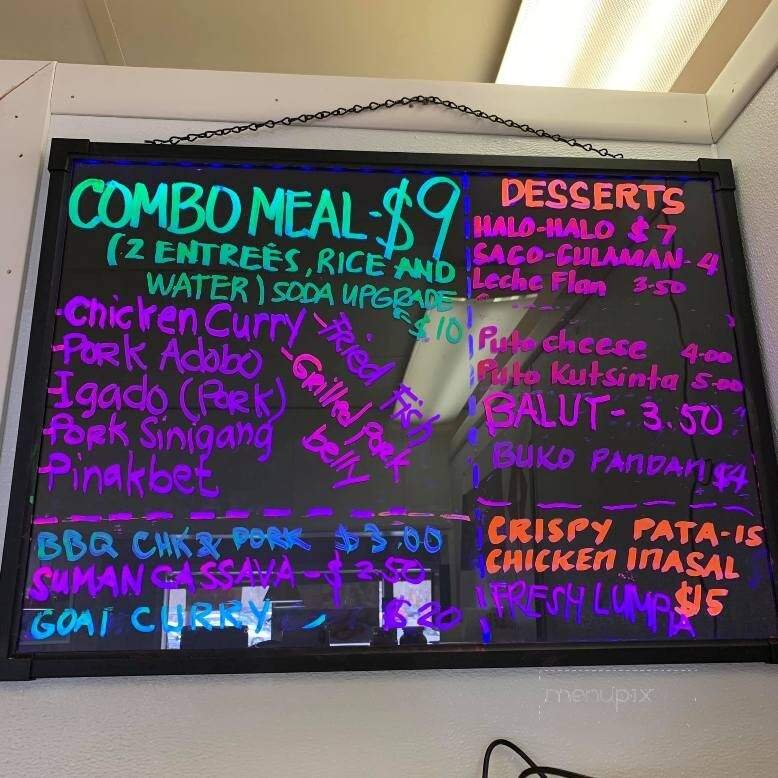 COMBO MEAL-$9
(2 ENTREÉS, RICE AND
WATER) SODA UPGRADE
-$10
-Chicken Curry
-Pork Adobo
-Igado (Pork)
-Pork Sinigang
-Pinakbet
-Fried Fish
-Grilled Pork
belly
BBQ CHK & PORK $3.00
SUMAN CASSAVA-$2.50
GOAT CURRY - $20
DESSERTS
HALO-HALO $7
SAGO-GULAMAN-4
Leche Flan 3.50
Puto cheese 4.00
Puto Kutsinta 5.00
BALUT- 3.50
BUKO PANDAN $4
CRISPY PATA-15
CHICKEN INASAL
$15
FRESH LUMPIA
menupix